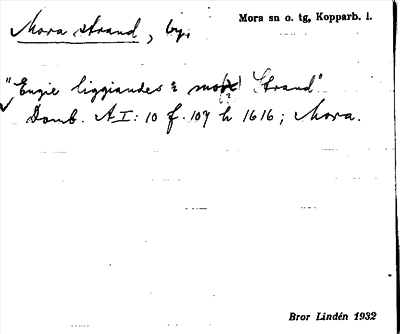 Mora strand, by,
Mora sn o. tg, Kopparb. l.
"Engie liggiandes i Strand"
Domb. A I: 10 f. 109 h 1616; Mora.
Bror Lindén 1932